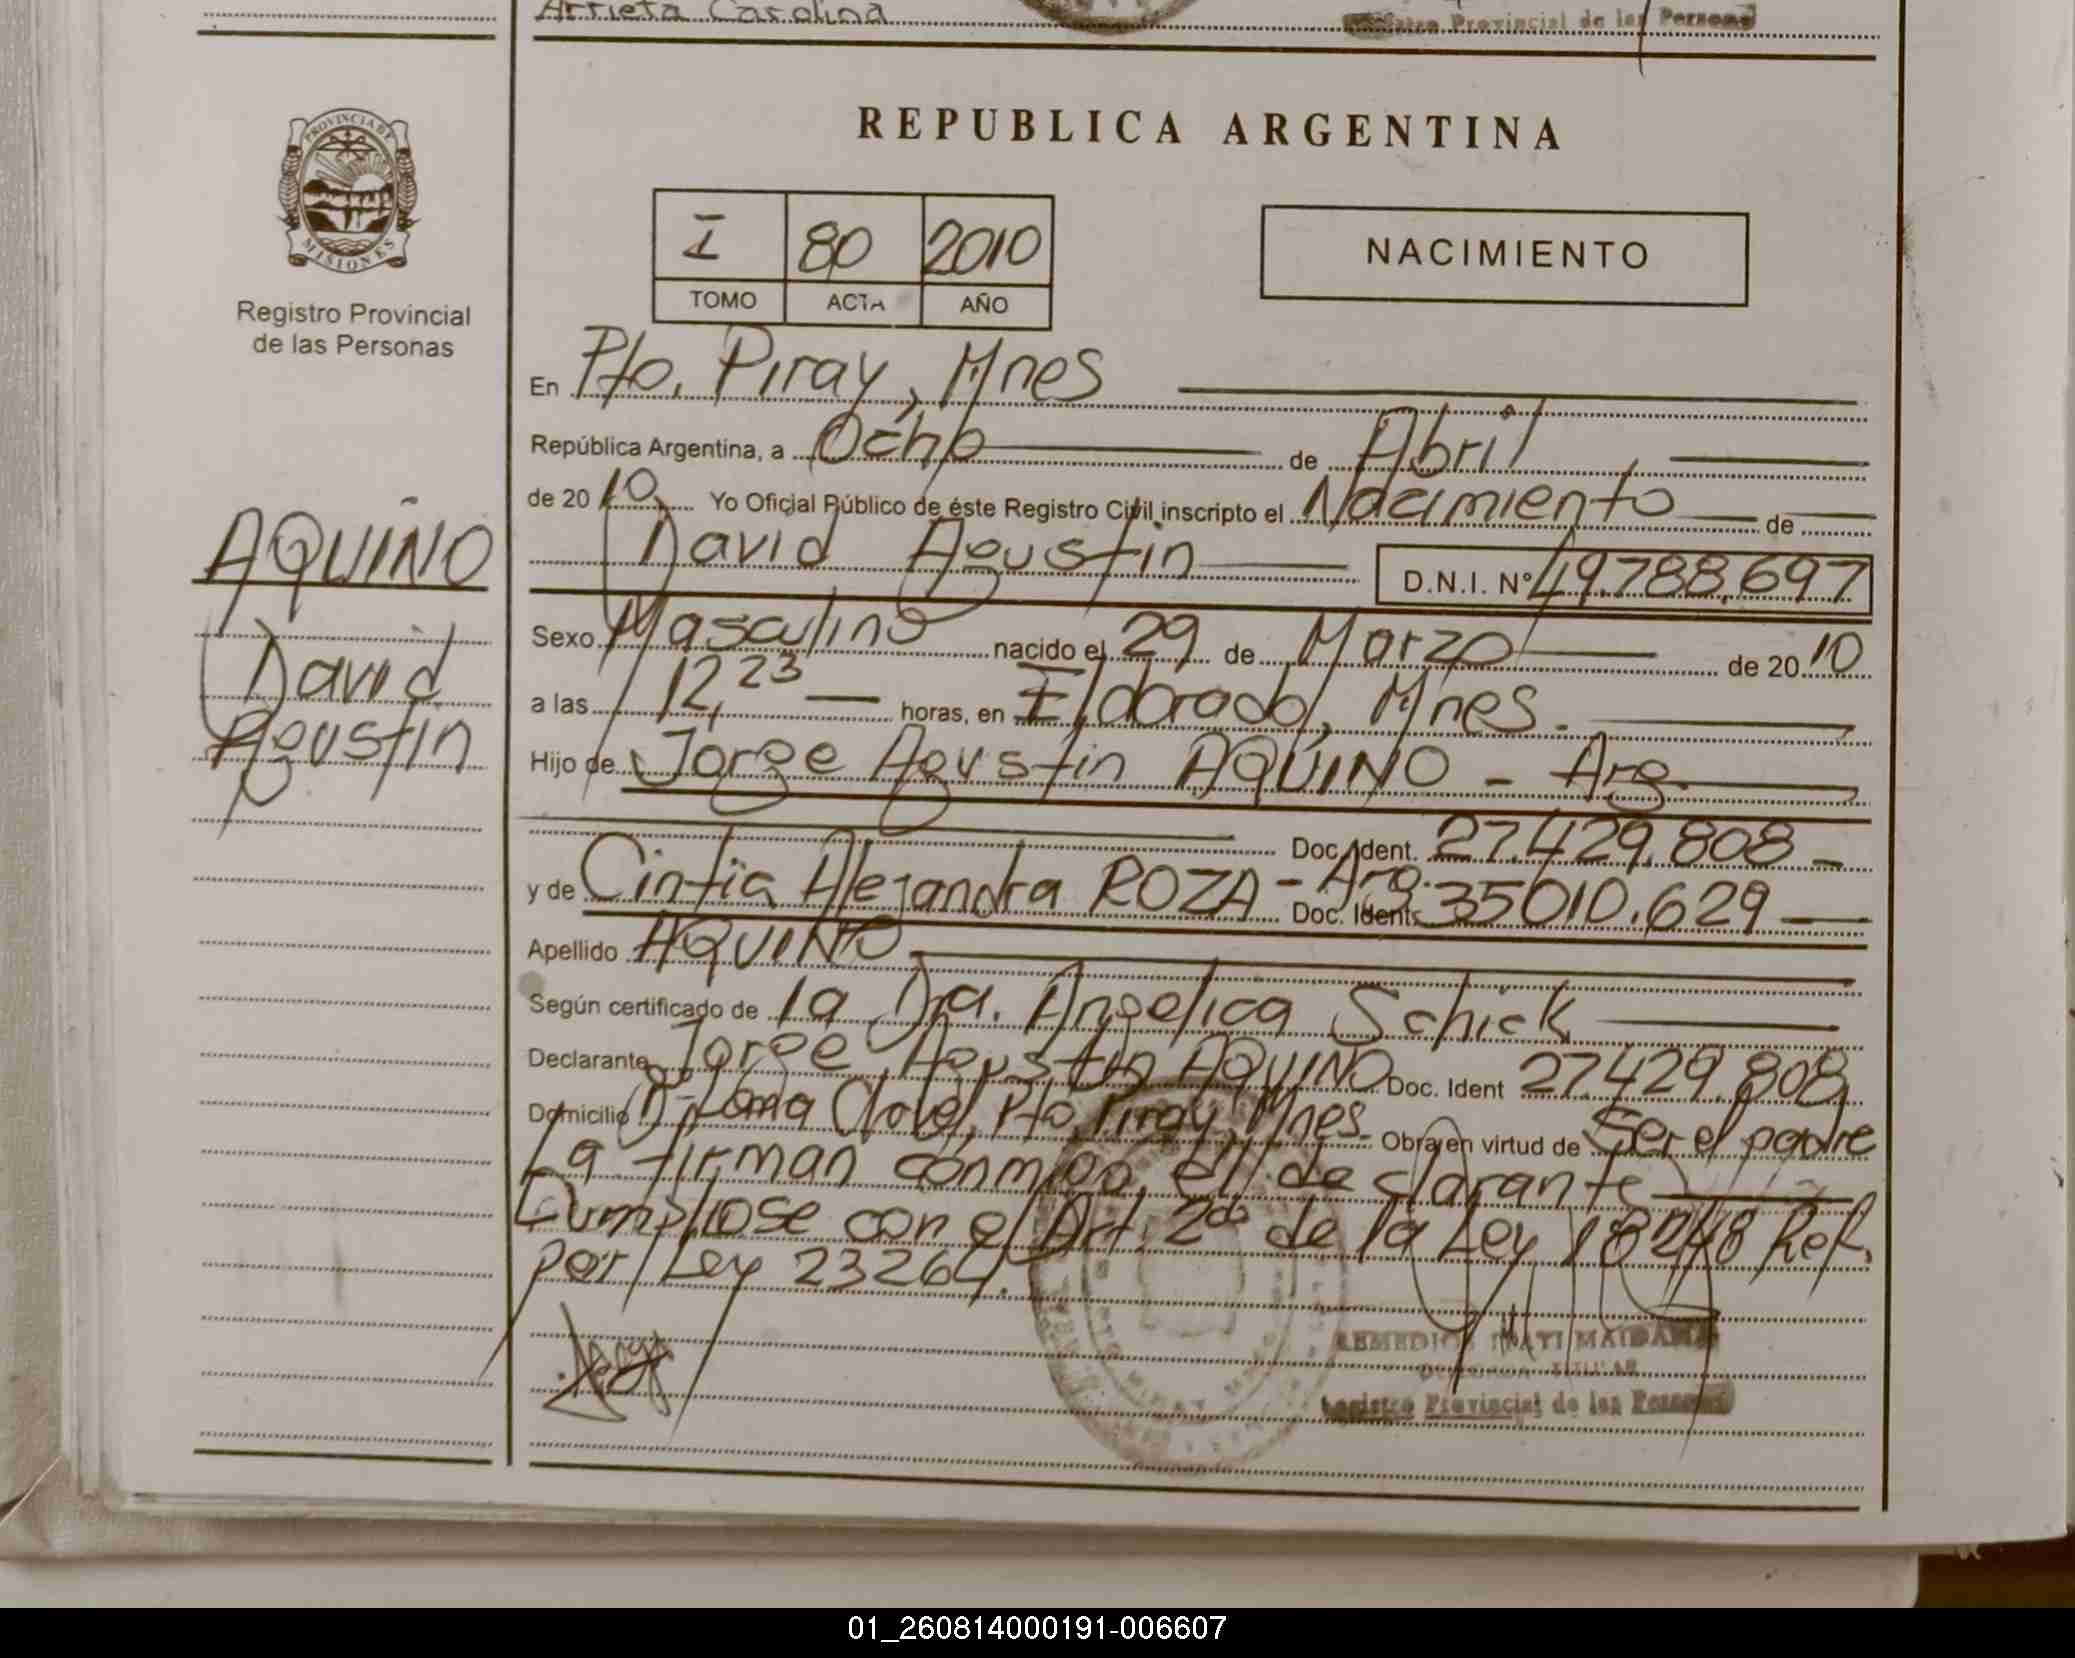 Arrieta Carolina
Registro Provincial de las Personas
PROVINCIA DE
MISIONES
Registro Provincial
de las Personas
REPUBLICA ARGENTINA
I 80 2010
TOMO ACTA AÑO
NACIMIENTO
En Pto. Piray, Mnes
República Argentina, a Ocho de Abril
de 2010 Yo Oficial Público de éste Registro Civil inscripto el Nacimiento de
David Agustin D.N.I. Nº 49.788.697
AQUINO
David
Agustin
Sexo Masculino nacido el 29 de Marzo de 2010
a las 12,23 horas, en Eldorado, Mnes.
Hijo de Jorge Agustin AQUINO - Arg.
Doc. Ident. 27.429.808
y de Cintia Alejandra ROZA - Arg. Doc. Ident. 35010.629
Apellido AQUINO
Según certificado de la Dra. Angelica Schick
Declarante Jorge Agustin AQUINO Doc. Ident 27.429.808
Domicilio Pto. Piray, Mnes. Obra en virtud de Ser el padre
La firman conmigo, el declarante
Cumpliose con el Art. 2do de la Ley 18248 Ref.
por Ley 23264.
REMEDIOS MAIDANA
TITULAR
Registro Provincial de las Personas
01_260814000191-006607